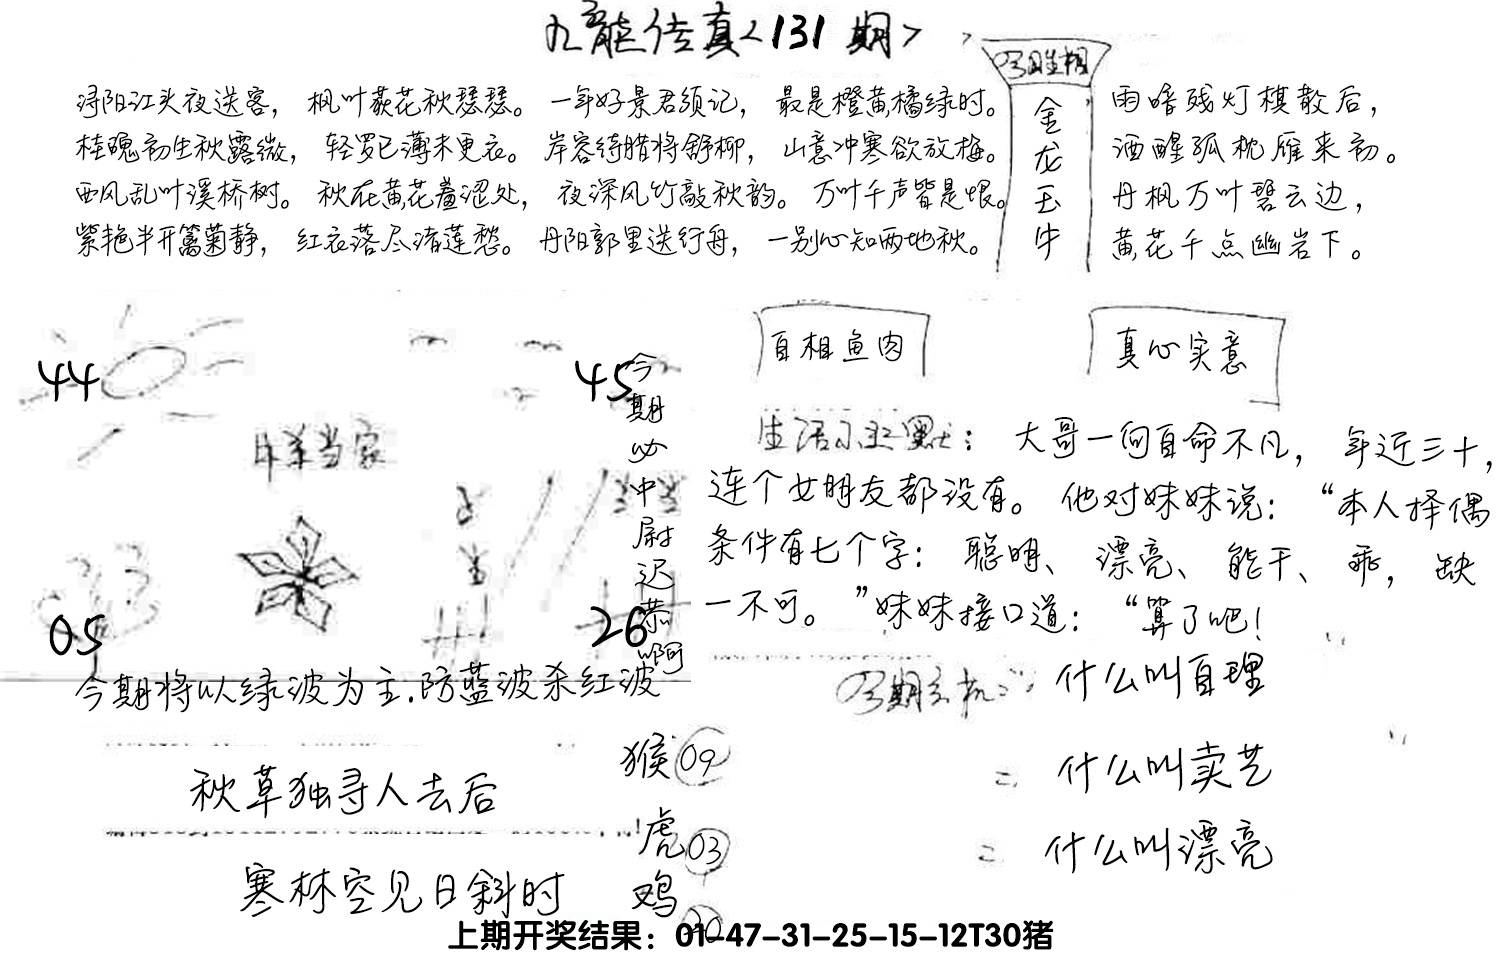 九龙传真<131期>
浔阳江头夜送客，枫叶荻花秋瑟瑟。一年好景君须记，最是橙黄橘绿时。
桂魄初生秋露微，轻罗已薄未更衣。岸容待腊将舒柳，山意冲寒欲放梅。
西风乱叶溪桥树。秋在黄花羞涩处，夜深风竹敲秋韵。万叶千声皆是恨。
紫艳半开篱菊静，红衣落尽渚莲愁。丹阳郭里送行舟，一别心知两地秋。
金龙玉牛
雨暗残灯棋散后，
酒醒孤枕雁来初。
丹枫万叶碧云边，
黄花千点幽岩下。
44
45
今期必中尉迟恭啊
05
26
今期将以绿波为主.防蓝波杀红波
自相鱼肉
真心实意
生活小幽默：大哥一向自命不凡，年近三十，
连个女朋友都没有。他对妹妹说：“本人择偶
条件有七个字：聪明、漂亮、能干、乖，缺
一不可。”妹妹接口道：“算了吧！
什么叫自理
= 什么叫卖艺
= 什么叫漂亮
秋草独寻人去后
寒林空见日斜时
猴09
虎03
鸡20
上期开奖结果：01-47-31-25-15-12T30猪